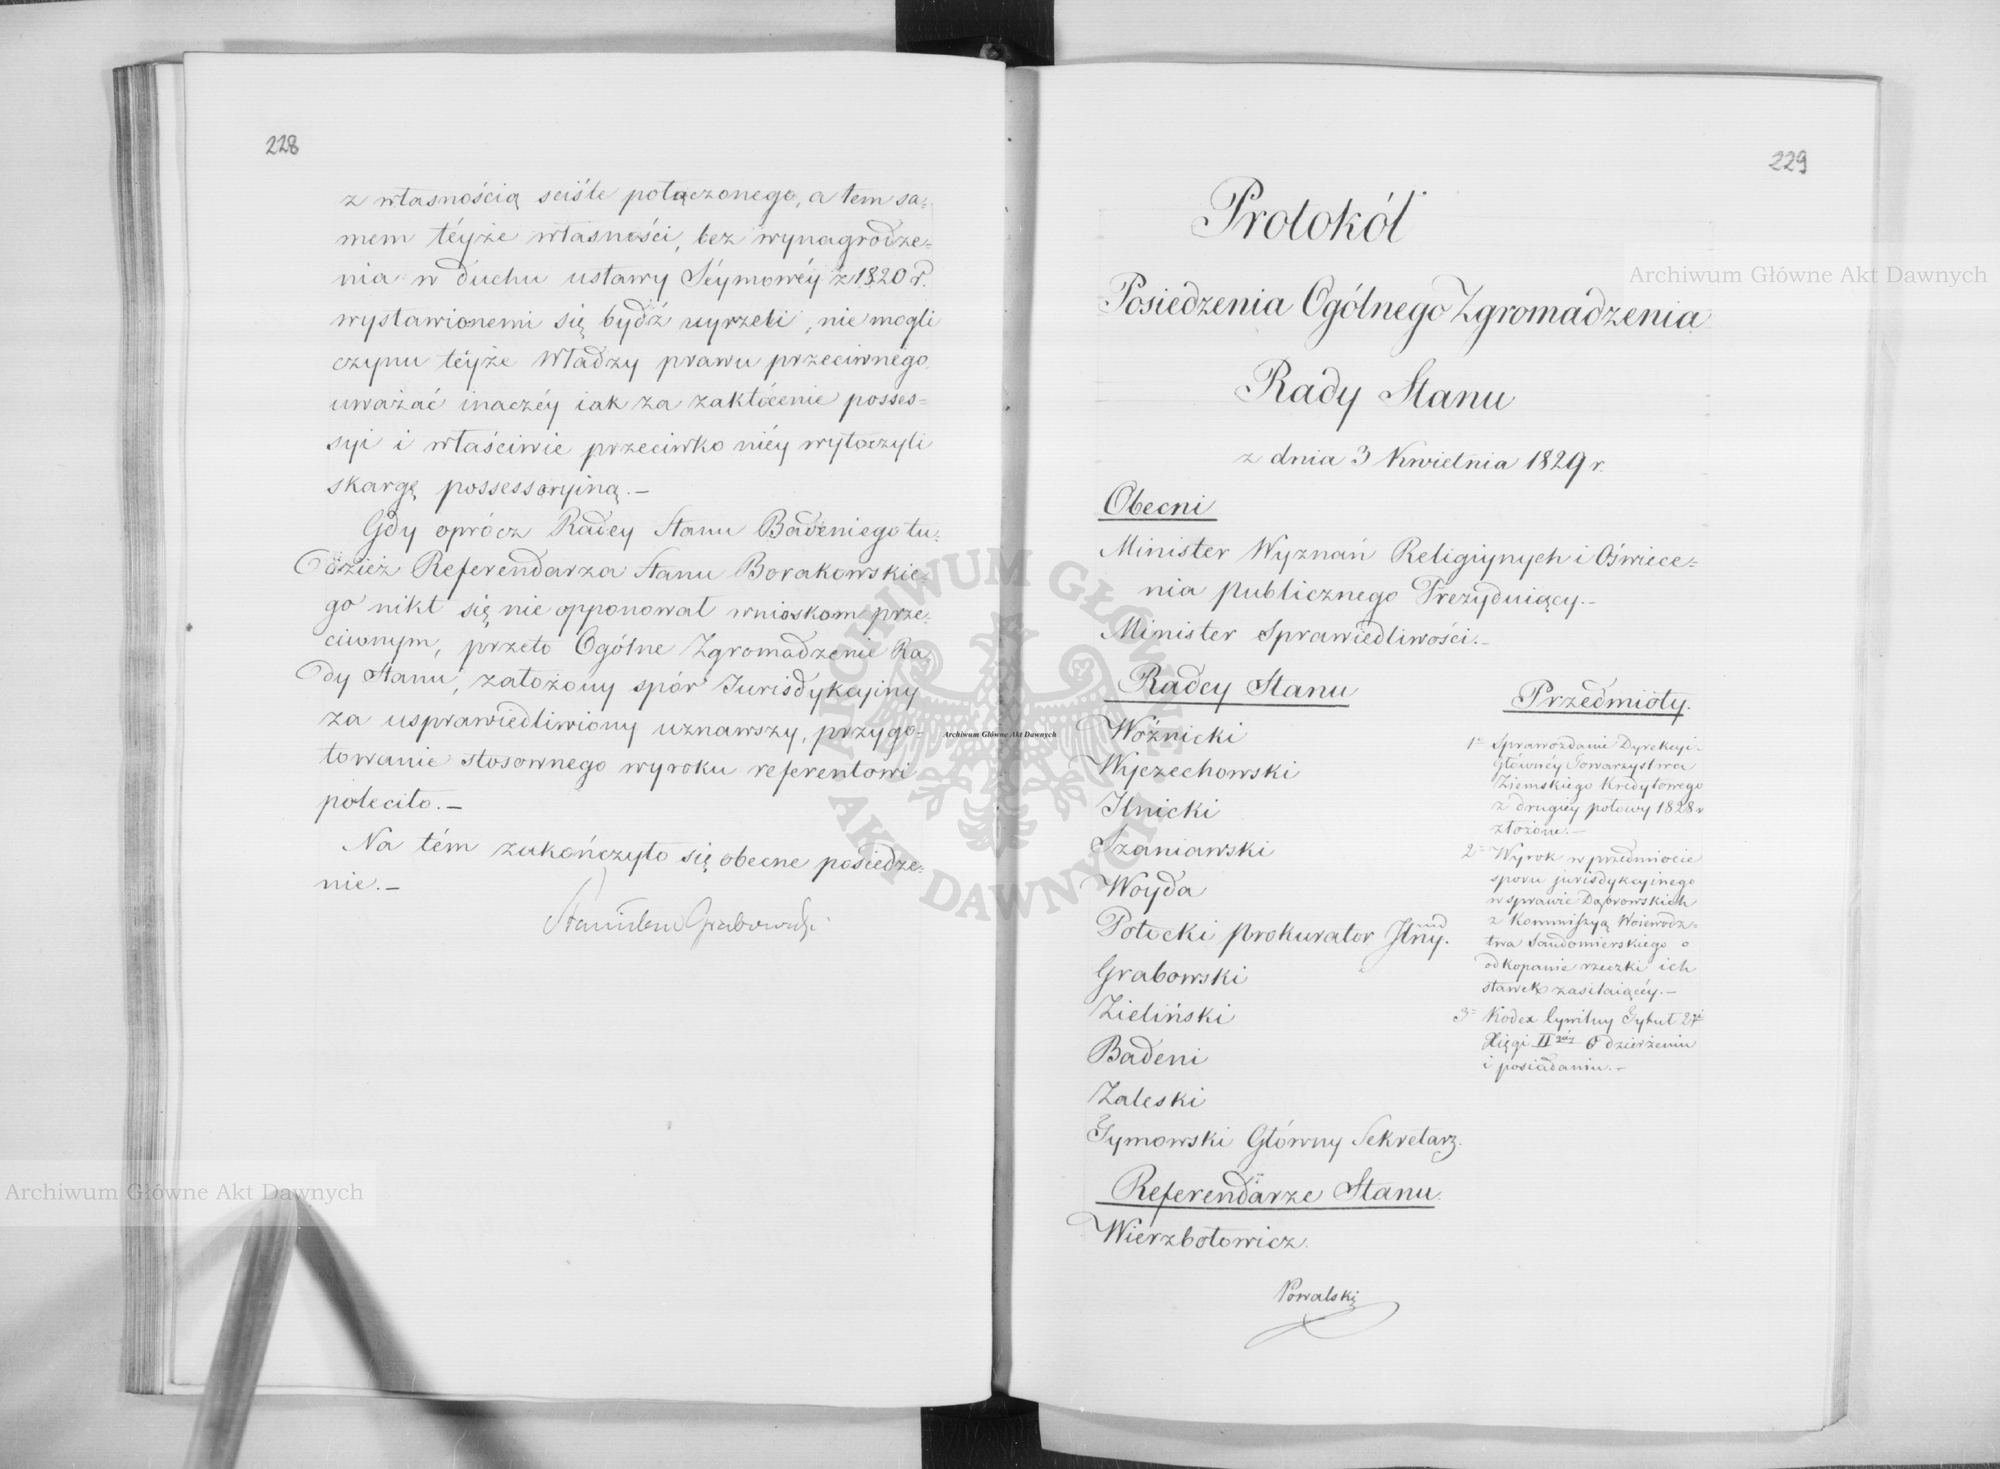 228
z własnością sciśle połączonego, a tem sa=
mem téyże własności, bez wynagrodze=
nia w duchu ustawy Séymowéy z 1820 r.
wystawionemi się bydź uyrzeli, nie mogli
czynu téyże Władzy prawu przeciwnego
uważać inaczéy iak za zakłócenie posses=
syi i właściwie przeciwko niéy wytoczyli
skargę possessoryiną.—
Gdy oprócz Radcy Stanu Badeniego tu=
dzież Referendarza Stanu Borakowskie=
go nikt się nie opponował wnioskom prze=
ciwnym, przeto Ogólne Zgromadzenie Ra=
dy Stanu, założony spór Jurisdykcyiny
za usprawiedliwiony uznawszy, przygo=
towanie stosownego wyroku referentowi
poleciło.—
Na tém zakończyło się obecne posiedze=
nie.—
Stanisław Grabowski
229
Protokół
Posiedzenia Ogólnego Zgromadzenia
Rady Stanu
z dnia 3 Kwietnia 1829 r.
Obecni
Minister Wyznań Religiynych i Oświece=
nia publicznego Prezyduiący.—
Minister Sprawiedliwości.—
Radcy Stanu
Woźnicki
Wyczechowski
Ilnicki
Szaniawski
Woyda
Potocki Prokurator Jlny.
Grabowski
Zieliński
Badeni
Zaleski
Tymowski Główny Sekretarz.
Referendarze Stanu.
Wierzbołowicz.
Kowalski
Przedmioty.
1° Sprawozdanie Dyrekcyi
Głównéy Towarzystwa
Ziemskiego Kredytowego
z drugiéy połowy 1828 r
złożone.—
2° Wyrok w przedmiocie
sporu jurisdykcyinego
w sprawie Dąbrowskich
z Kommissyą Woiewódz=
twa Sandomierskiego o
odkopanie rzeczki ich
stawek zasilaiącéy.—
3° Kodex Cywilny Tytuł 2gi
Xięgi IIgiéy O dzierżeniu
i posiadaniu.—
Archiwum Główne Akt Dawnych
Archiwum Główne Akt Dawnych
Archiwum Główne Akt Dawnych
ARCHIWUM GŁÓWNE
AKT DAWNYCH